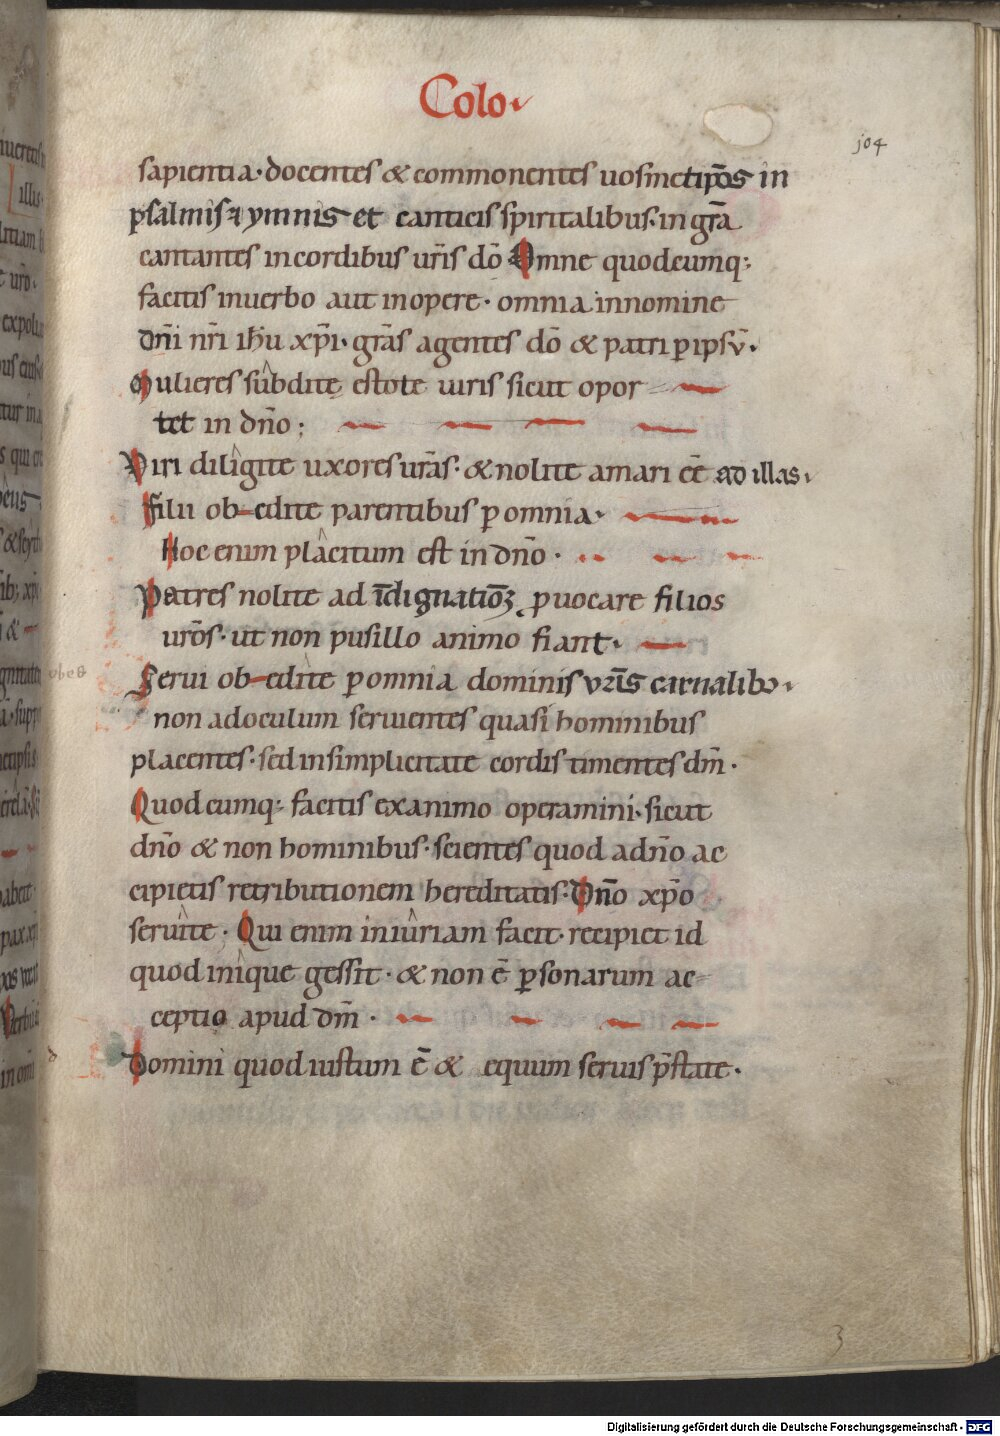 Colo.
104
sapientia. docentes & commonentes uosmetip̄os in
psalmis ⁊ ymnis et canticis spiritalibus. in gr̄a
cantantes incordibus ur̄is dō Omne quodcumq;
facitis inuerbo aut inopere. omnia innomine
dn̄i nr̄i ih̄u xp̄i. gr̄as agentes dō & patri p̱ ipsū.
Mulieres subdite estote uiris sicut opor
tet in dn̄o;
Viri diligite uxores ur̄as. & nolite amari eē ad illas.
Filii ob-edite parentibus p̱ omnia.
Hoc enim placitum est in dn̄o.
Patres nolite ad īdignatiōꝫ ꝓuocare filios
urōs. ut non pusillo animo fiant.
Serui ob-edite p̱ omnia dominis vr̄is carnalibꝰ.
non adoculum seruientes quasi hominibus
placentes. sed insimplicitate cordis timentes dm̄.
Quodcumq; facitis exanimo operamini. sicut
dn̄o & non hominibus. scientes quod adn̄o ac
cipietis retributionem hereditatis. Dn̄o xp̄o
seruite. Qui enim iniuriam facit. recipiet id
quod inique gessit. & non ē p̱sonarum ac-
ceptio apud dm̄.
Domini quod iustum ē & equum seruis p̄state.
3
Digitalisierung gefördert durch die Deutsche Forschungsgemeinschaft - DFG